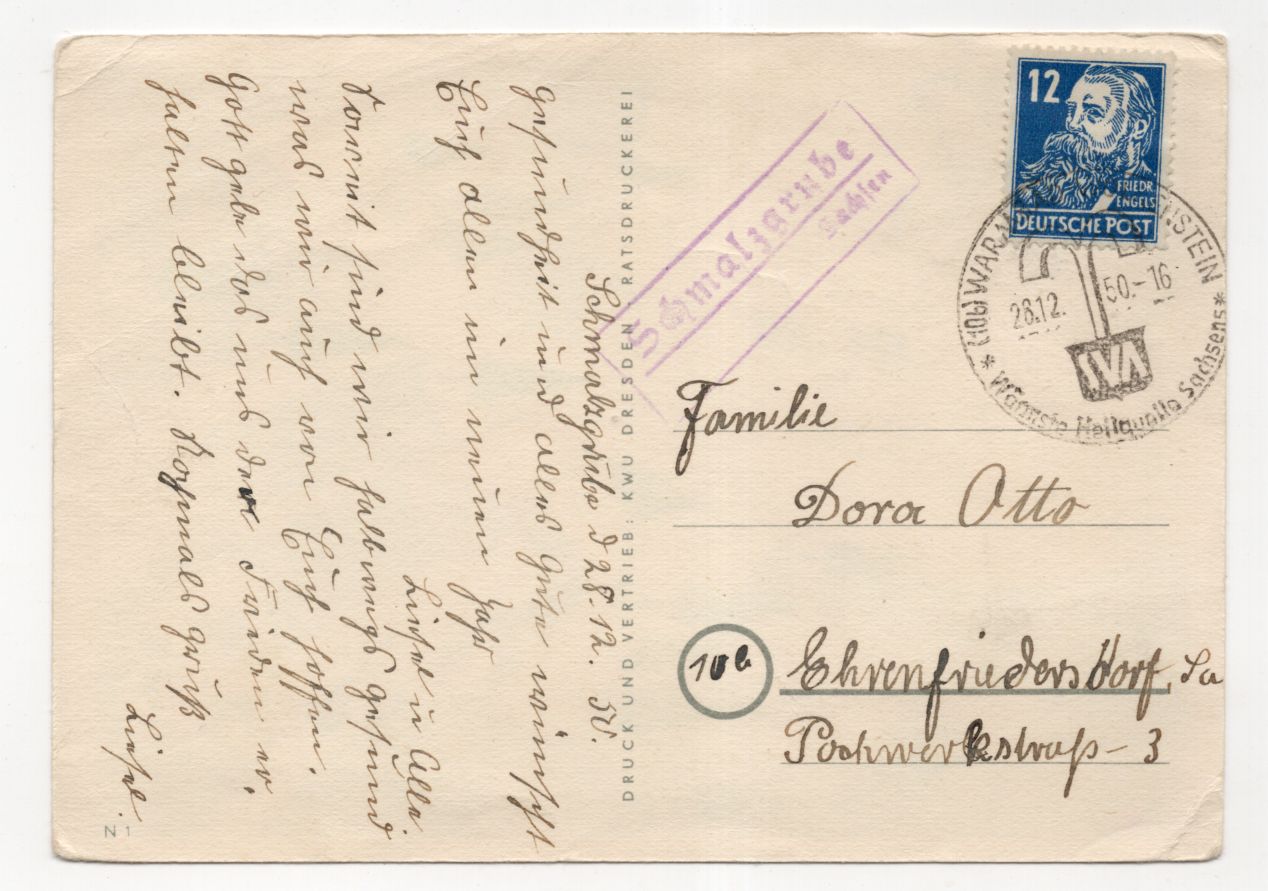 Schmalzgrube d 28.12. 50.
Gesundheit und alles Gute wünscht
Euch allen im neuen Jahr
Liesel u Alle.
Soweit sind wir halbwegs gesund
was wir auch von Euch hoffen.
Gott gebe das uns der Frieden er-
halten bleibt. Nochmals Gruß
Liesel.
N 1
DRUCK UND VERTRIEB: KWU DRESDEN RATSDRUCKEREI
Schmalzgrube
Sachsen
12
FRIEDR
ENGELS
DEUTSCHE POST
(10b) WARM
ENSTEIN
28.12. 50.-16
SVA
* Wärmste Heilquelle Sachsens *
Familie
Dora Otto
10b
Ehrenfriedersdorf, Sa
Pochwerkstraß- 3